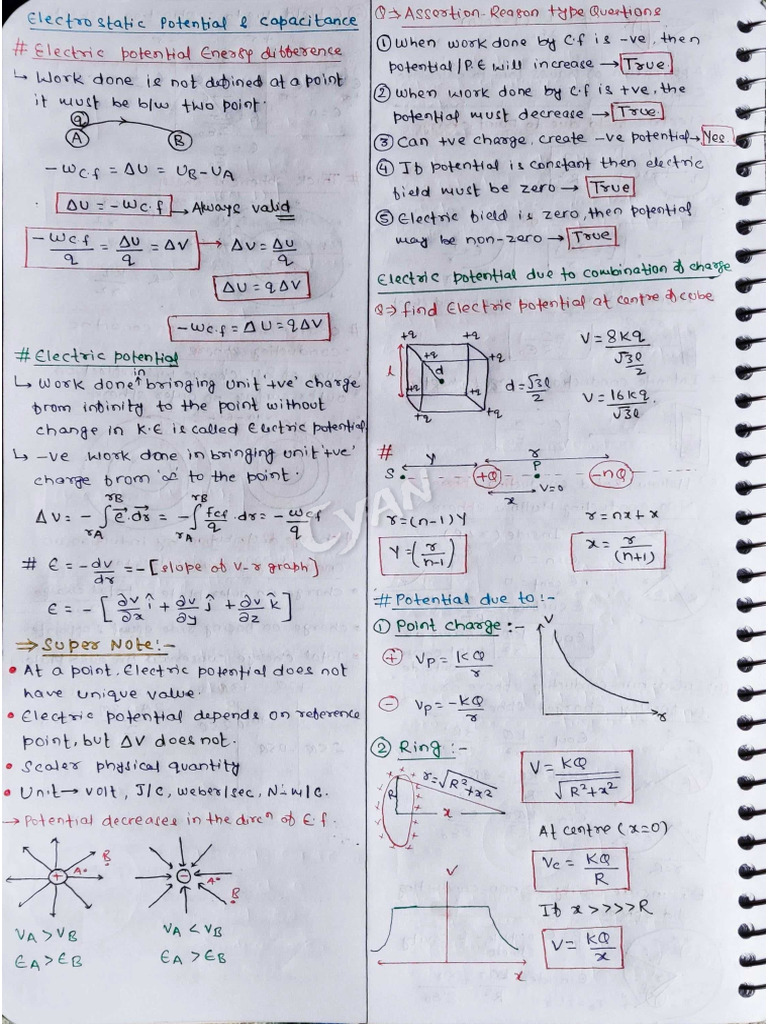 Electrostatic Potential & Capacitance
# Electric potential Energy difference
↳ Work done is not defined at a point
it must be b/w two point.
q
A B
-Wc.f = ΔU = UB - UA
ΔU = -Wc.f → Always valid
-Wc.f/q = ΔU/q = ΔV → ΔV = ΔU/q
ΔU = qΔV
-Wc.f = ΔU = qΔV
# Electric potential
↳ Work done in bringing unit '+ve' charge
from infinity to the point without
change in K.E is called Electric potential.
↳ -ve work done in bringing unit '+ve'
charge from '∞' to the point.
ΔV = - ∫rA^rB E.dr = - ∫rA^rB Fcf/q . dr = - Wcf/q
# E = -dv/dr = - [slope of v-r graph]
E = - [∂v/∂x î + ∂v/∂y ĵ + ∂v/∂z k̂]
⇒ Super Note:-
• At a point, Electric potential does not
have unique value.
• Electric potential depends on reference
point, but ΔV does not.
• Scaler physical quantity
• Unit → volt, J/C, weber/sec, N-m/C.
→ Potential decreases in the dirⁿ of E.f.
+ A B
- A B
VA > VB VA < VB
EA > EB EA > EB
Q ⇒ Assertion-Reason type Questions
① When work done by C.f is -ve, then
potential/P.E will increase → True
② When work done by C.f is +ve, the
potential must decrease → True
③ Can +ve charge, create -ve potential → Yes
④ If potential is constant then electric
field must be zero → True
⑤ Electric field is zero, then potential
may be non-zero → True
Electric potential due to combination of charge
Q ⇒ find Electric potential at centre of cube
+q +q
+q +q
l d
+q +q
+q +q
d = √3l/2
V = 8Kq/(√3l/2)
V = 16Kq/√3l.
#
y r
S +Q P -nQ
x V=0
r = (n-1)y r = nx + x
y = (r/n-1) x = r/(n+1)
CYAN
# Potential due to :-
① Point charge :-
+ Vp = KQ/r
- Vp = -KQ/r
V
r
② Ring :-
R r = √R²+x² x
V = KQ/√R²+x²
At centre (x=0)
Vc = KQ/R
If x >>>> R
V = KQ/x
V
x